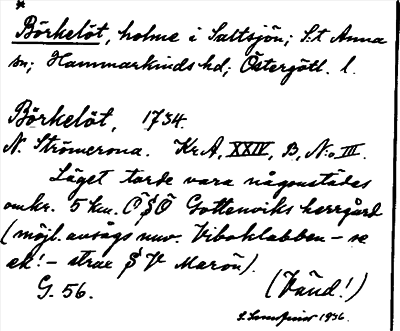 *
Börkelöt, holme i Saltsjön; S:t Anna
sn; Hammarkinds hd; Östergötl. l.
Börkelöt, 1734.
N. Strömcrona. Kr.A, XXIV, B, N:o III.
Läget torde vara någonstädes
omkr. 5 km. O § Ö Gottenviks herrgård
(möjl. avsågs nuv. Viboklabben – se
ek! – strax § V Marön).
G. 56. (Vänd!)
1936.